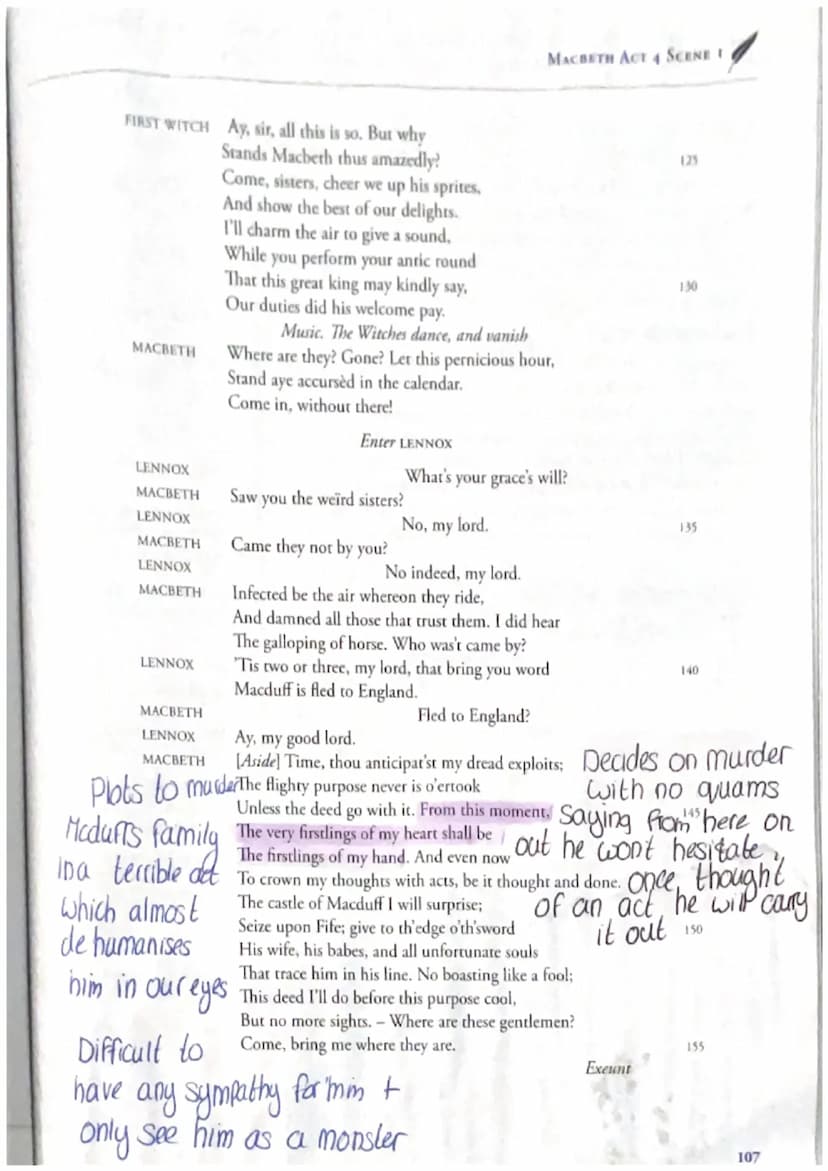 MACBETH ACT 4 SCENE 1
FIRST WITCH Ay, sir, all this is so. But why
Stands Macbeth thus amazedly? 125
Come, sisters, cheer we up his sprites,
And show the best of our delights.
I'll charm the air to give a sound,
While you perform your antic round
That this great king may kindly say, 130
Our duties did his welcome pay.
Music. The Witches dance, and vanish
MACBETH Where are they? Gone? Let this pernicious hour,
Stand aye accursèd in the calendar.
Come in, without there!
Enter LENNOX
LENNOX What's your grace's will?
MACBETH Saw you the weïrd sisters?
LENNOX No, my lord. 135
MACBETH Came they not by you?
LENNOX No indeed, my lord.
MACBETH Infected be the air whereon they ride,
And damned all those that trust them. I did hear
The galloping of horse. Who was't came by?
LENNOX 'Tis two or three, my lord, that bring you word 140
Macduff is fled to England.
MACBETH Fled to England?
LENNOX Ay, my good lord.
MACBETH [Aside] Time, thou anticipat'st my dread exploits;
The flighty purpose never is o'ertook
Unless the deed go with it. From this moment, 145
The very firstlings of my heart shall be
The firstlings of my hand. And even now
To crown my thoughts with acts, be it thought and done.
The castle of Macduff I will surprise;
Seize upon Fife; give to th'edge o'th'sword 150
His wife, his babes, and all unfortunate souls
That trace him in his line. No boasting like a fool;
This deed I'll do before this purpose cool,
But no more sights. – Where are these gentlemen?
Come, bring me where they are. 155
Exeunt
Decides on murder
with no quams
Saying from here on
out he wont hesitate,
once thought
of an act he will carry
it out
Plots to murder
Mcduffs family
in a terrible act
which almost
dehumanises
him in our eyes
Difficult to
have any sympathy for him +
only see him as a monster
107